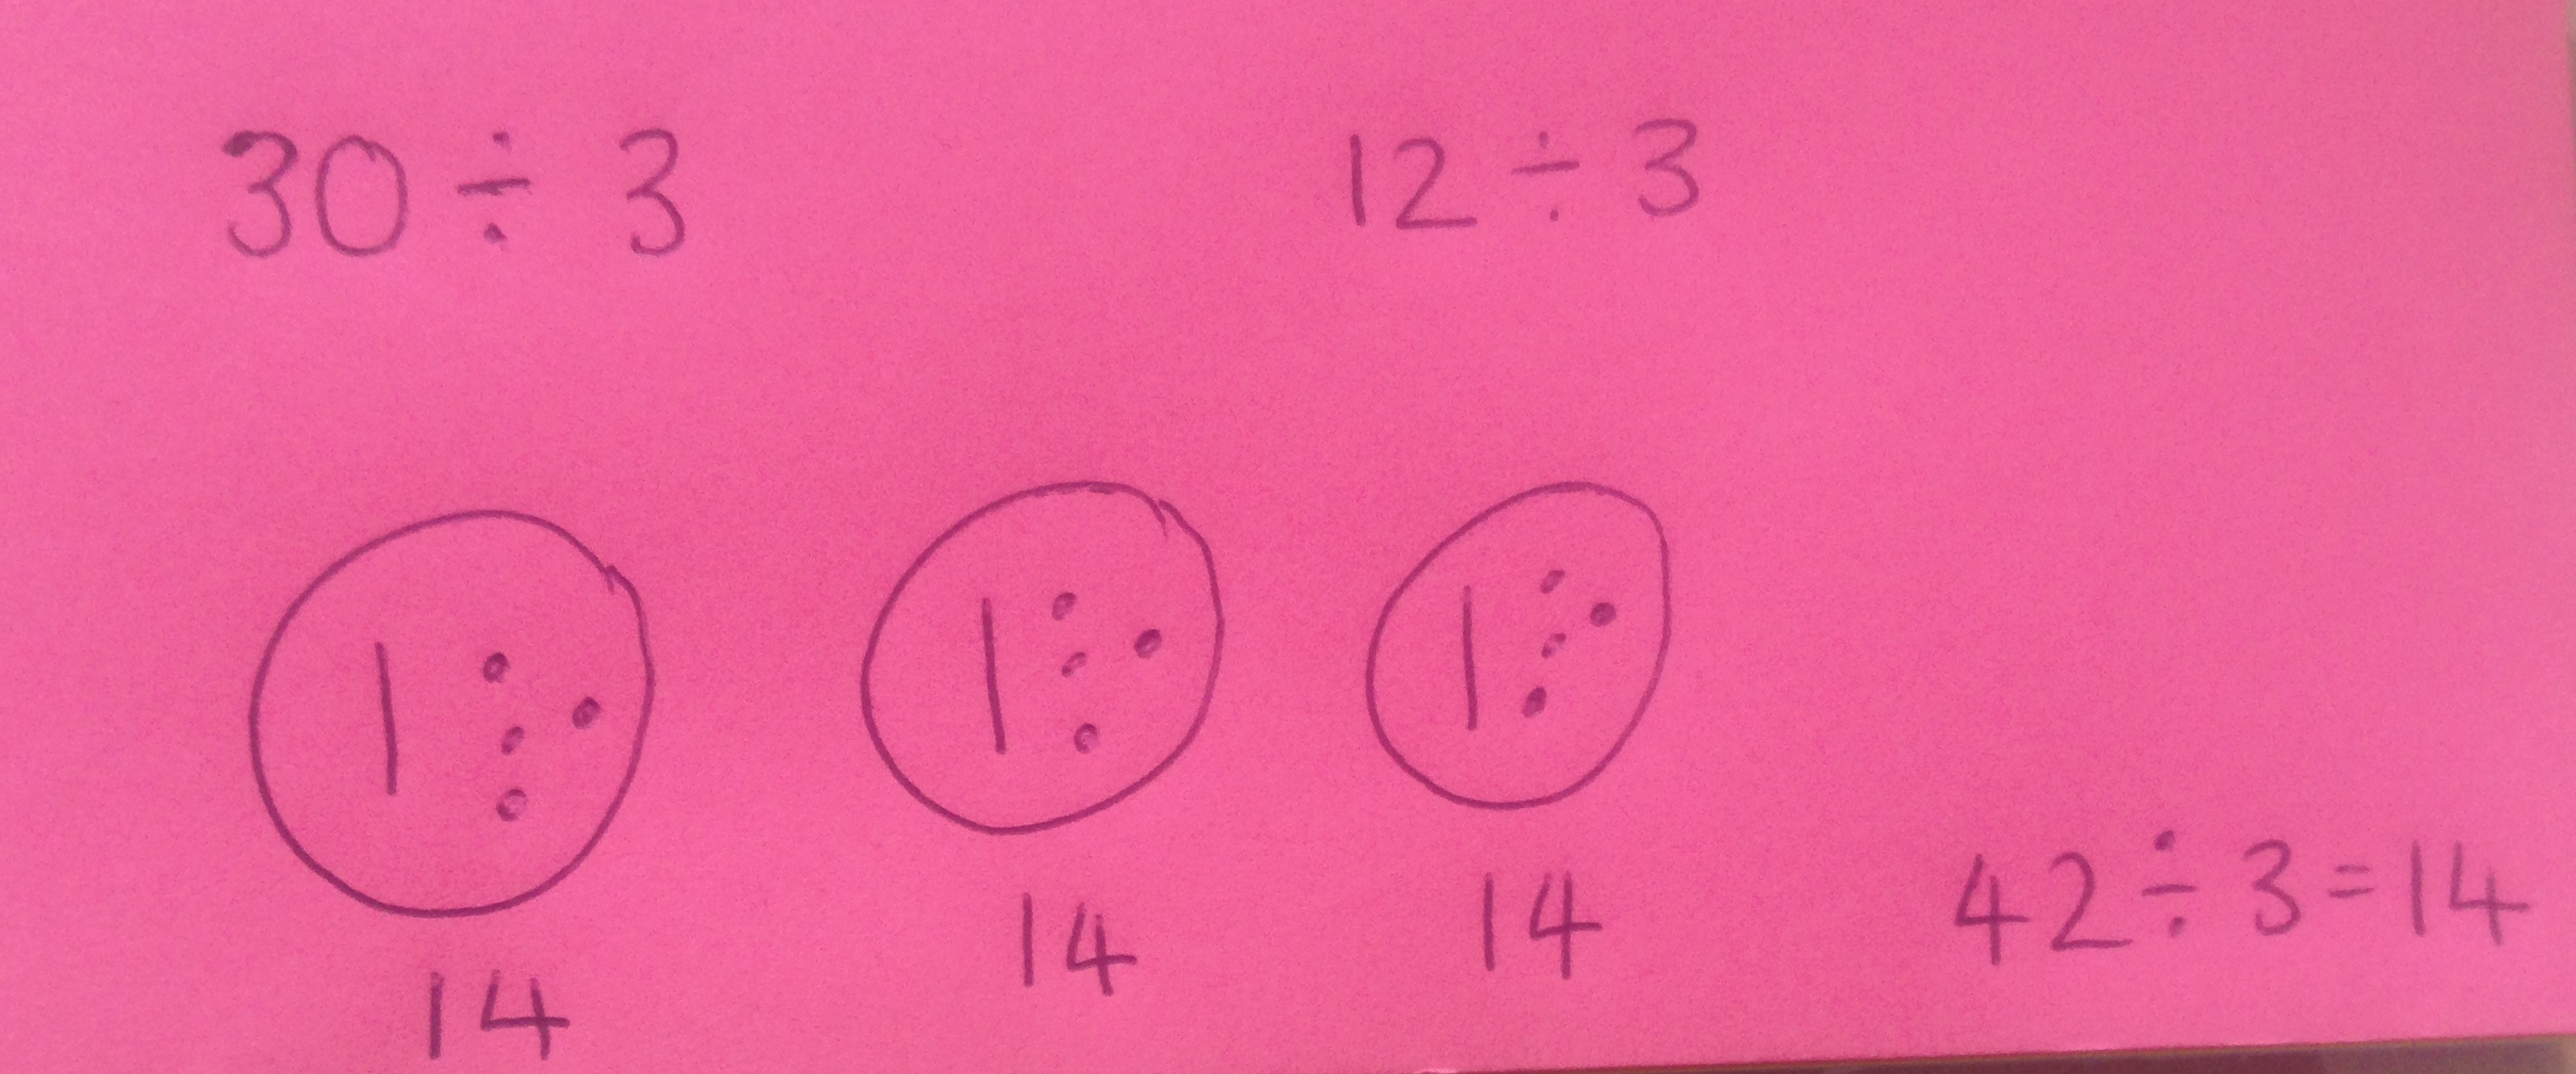 30 ÷ 3 12 ÷ 3
14 14 14 42 ÷ 3 = 14